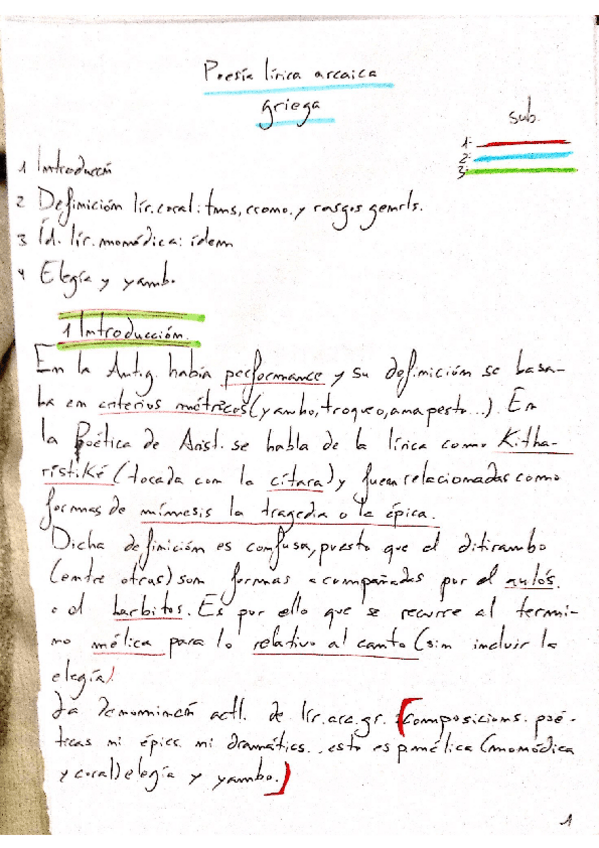 Poesía lírica arcaica
griega
sub.
1-
2-
3-
1 Introduccn
2 Definición lír. coral: tmns, ccomo. y rasgos gemrls.
3 Íd. lír. monódica: ídem
4 Elegía y yamb.
1 Introducción.
En la Antig. había performance y su definición se basa-
ba en criterios métricos (yambo, troqueo, anapesto...). En
la Poética de Arist. se habla de la lírica como Kitha-
ristiké (tocada con la cítara) y fueron relacionadas como
formas de mímesis la tragedia o la épica.
Dicha definición es confusa, puesto que el ditirambo
(entre otras) son formas acompañadas por el aulós
o el barbitos. Es por ello que se recurre al térmi-
no mélica para lo relativo al canto (sin incluir la
elegía)
La denominacn actl. de lír. arc. gr. : (composicions. poé-
ticas ni épics. ni dramátics. esto es p. mélica (monódica
y coral) elegía y yambo.)
1